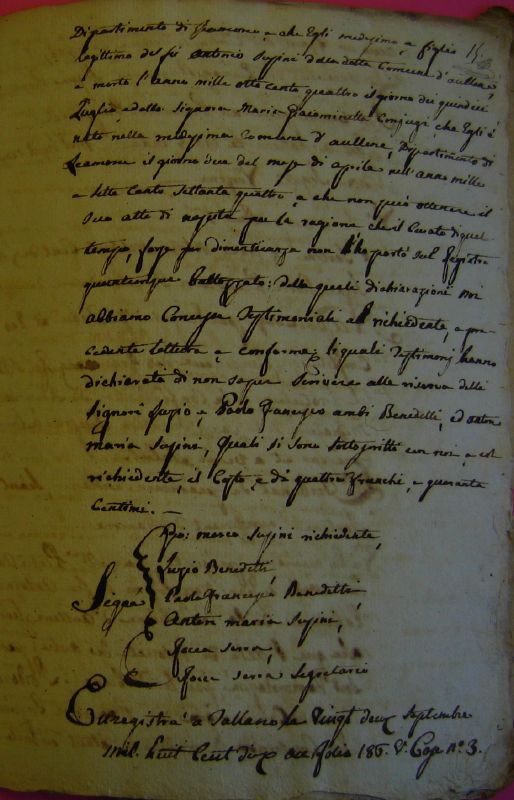 Dipartimento di Leamone, e che Egli medesimo, e figlio
legittimo del fù Antonio Susini della detta Comune d'aullene,
e morto l'anno mille otto cento quattro il giorno dei quindici
Luglio, e della Signora Maria Giacominetta Conjugi, che Egli è
nato nella medesima Comune d'aullene, Dipartimento di
Leamone il giorno due del mese di aprile nell'anno mille
e sette Cento Settanta quattro, e che non può ottenere il
suo atto di nascita per la ragione che il Curato di quel
tempo, forse per dimenticanza non l'ha portò sul Registro
quantunque battezzato: delle quali dichiarazioni noi
abbiamo Concesso Testimoniali al richiedente, e pre-
cedente lettura, e conferma, li quali Testimonj hanno
dichiarato di non saper scrivere alla riserva delli
Signori Luzio, e Paolo Francesco ambi Benedetti, ed anton
maria Susini, quali si sono sottoscritti con noi, e col
richiedente, il Costo, e di quattro Franchi, e quaranta
Centimi. —
Gio: marco Susini richiedente,
Luzio Benedetti,
Paolo Francesco Benedetti,
Signé Anton maria Susini,
Rocca serra,
Rocca serra Segretario
Enregistré a Tallano le Vingt deux Septembre
mil huit Cent dix au folio 186. V.° Case n.° 3.